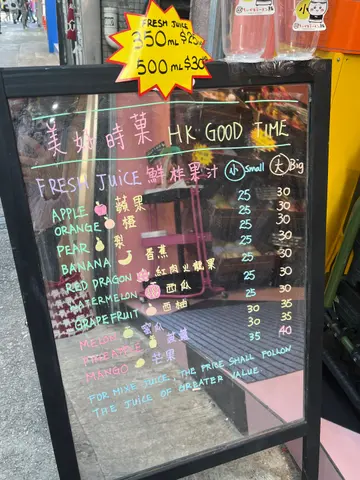 FRESH JUICE
350ML $25
500ML $30
美好時菓 HK GOOD TIME
FRESH JUICE 鮮榨果汁 小 Small 大 Big
APPLE 蘋果 25 30
ORANGE 橙 25 30
PEAR 梨 25 30
BANANA 香蕉 25 30
RED DRAGON 紅肉火龍果 25 30
WATERMELON 西瓜 25 30
GRAPEFRUIT 西柚 25 30
MELON 蜜瓜 30 35
PINEAPPLE 菠蘿 30 35
MANGO 芒果 35 40
FOR MIXE JUICE, THE PRICE SHALL FOLLOW
THE JUICE OF GREATER VALUE